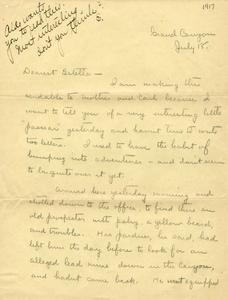 Aide wants
you to see this.
Most interesting
don't you think?
S.
1917
Grand Canyon
July 15.
Dearest Estelle —
I am making this
sendable to mother and back because I
want to tell you of a very interesting little
"pasear" yesterday and haven't time to write
two letters. I used to have the habit of
bumping into adventures — and don't seem
to be quite over it yet.
Arrived here yesterday morning and
strolled down to the office to find there an
old prospector with palsy, a yellow beard,
and troubles. His pardner, he said, had
left him the day before to look for an
alleged lead mine down in the Canyon,
and hadn't come back. He went equipped